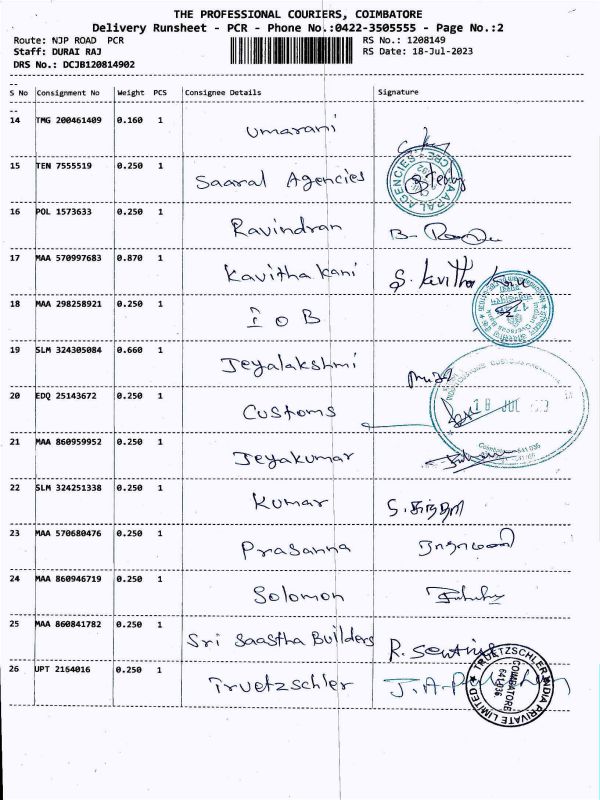 THE PROFESSIONAL COURIERS, COIMBATORE
Delivery Runsheet - PCR - Phone No.:0422-3505555 - Page No.:2
Route: NJP ROAD PCR RS No.: 1208149
Staff: DURAI RAJ RS Date: 18-Jul-2023
DRS No.: DCJB120814902
S No Consignment No Weight PCS Consignee Details Signature
14 TMG 200461409 0.160 1 Umarani
15 TEN 7555519 0.250 1 Saaral Agencies
16 POL 1573633 0.250 1 Ravindran
17 MAA 570997683 0.870 1 Kavitha Kani
18 MAA 298258921 0.250 1 I O B
19 SLM 324305084 0.660 1 Jeyalakshmi
20 EDQ 25143672 0.250 1 Customs
18 JUL
21 MAA 860959952 0.250 1 Jeyakumar
22 SLM 324251338 0.250 1 Kumar
23 MAA 570680476 0.250 1 Prasanna
24 MAA 860946719 0.250 1 Solomon
25 MAA 860841782 0.250 1 Sri Saastha Builders
26 UPT 2164016 0.250 1 Truetzschler
TRUETZSCHLER INDIA PRIVATE LIMITED
COIMBATORE
641036